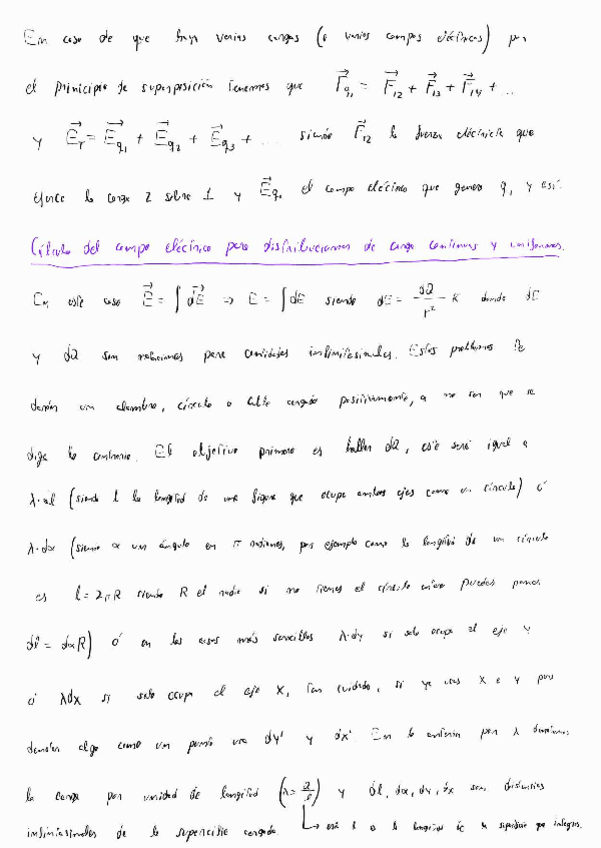 En caso de que haya varias cargas (o varios campos eléctricos) por
el principio de superposición tenemos que F⃗_q1 = F⃗_12 + F⃗_13 + F⃗_14 + ...
y E⃗_T = E⃗_q1 + E⃗_q2 + E⃗_q3 + ... siendo F⃗_12 la fuerza eléctrica que
ejerce la carga 2 sobre 1 y E⃗_q1 el campo eléctrico que genera q1 y así.
Cálculo del campo eléctrico para distribuciones de carga continuas y uniformes.
En este caso E⃗ = ∫ dE⃗ ⇒ E = ∫ dE siendo dE = dQ/r² · K donde dE
y dQ son notaciones para cantidades infinitesimales. Estos problemas te
darán un alambre, círculo o cargado positivamente, a no ser que se
diga lo contrario. El objetivo primero es hallar dQ, este será igual a
λ·dl (siendo l la longitud de una figura que ocupe ambos ejes como un círculo) ó
λ·dα (siendo α un ángulo en π radianes, por ejemplo como la longitud de un círculo
es l = 2πR siendo R el radio si no tienes el círculo entero puedes poner
dl = dαR) ó en los casos más sencillos λ·dy si solo ocupa el eje y
ó λdx si solo ocupa el eje x, ten cuidado, si ya usas x e y para
denotar algo como un punto usa dy' y dx'. En lo anterior por λ
la carga por unidad de longitud (λ = Q/l) y dl, dα, dy, dx son distancias
infinitesimales de la superficie cargada. ↳ esta l es la longitud de la superficie que integras.